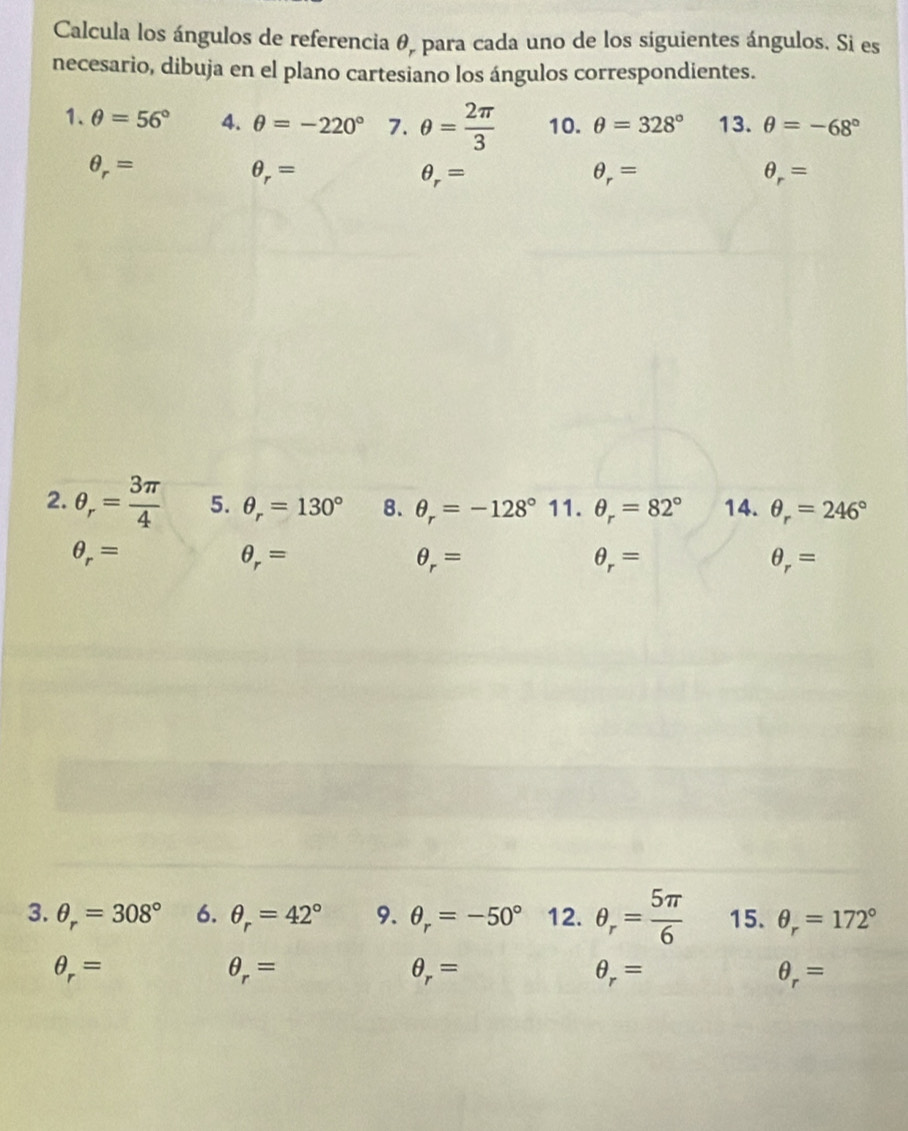 Calcula los ángulos de referencia θᵣ para cada uno de los siguientes ángulos. Si es
necesario, dibuja en el plano cartesiano los ángulos correspondientes.
1. θ = 56° 4. θ = −220° 7. θ = 2π/3 10. θ = 328° 13. θ = −68°
θᵣ = θᵣ = θᵣ = θᵣ = θᵣ =
2. θᵣ = 3π/4 5. θᵣ = 130° 8. θᵣ = −128° 11. θᵣ = 82° 14. θᵣ = 246°
θᵣ = θᵣ = θᵣ = θᵣ = θᵣ =
3. θᵣ = 308° 6. θᵣ = 42° 9. θᵣ = −50° 12. θᵣ = 5π/6 15. θᵣ = 172°
θᵣ = θᵣ = θᵣ = θᵣ = θᵣ =